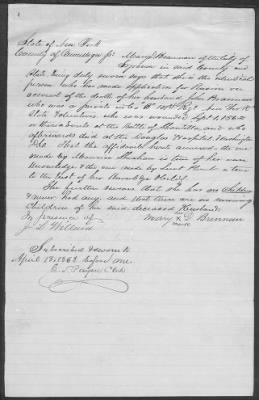 State of New York
County of Onondaga ss Mary Brennan of the City of
Syracuse in said County and
State being duly sworn says that she is the identical
person who has made application for Pension on
account of the death of her husband John Brennan
who was a private in Co B Reg. New York
State Volunteers who was wounded Sept 1, 1862
at the Battle of Chantilly and who
afterwards died at the Douglas Hospital Washington
D.C. That the affidavit hereto annexed
made by is true of her own
knowledge & the one made by Lieut is true
to the best of her knowledge & belief
She further swears that she has no children
& never had any and that there are no surviving
Children of her said deceased Husband
In presence of Mary X D. Brennan
J. L. Willard mark
Subscribed & sworn to
April 18, 1863 before me
Clk